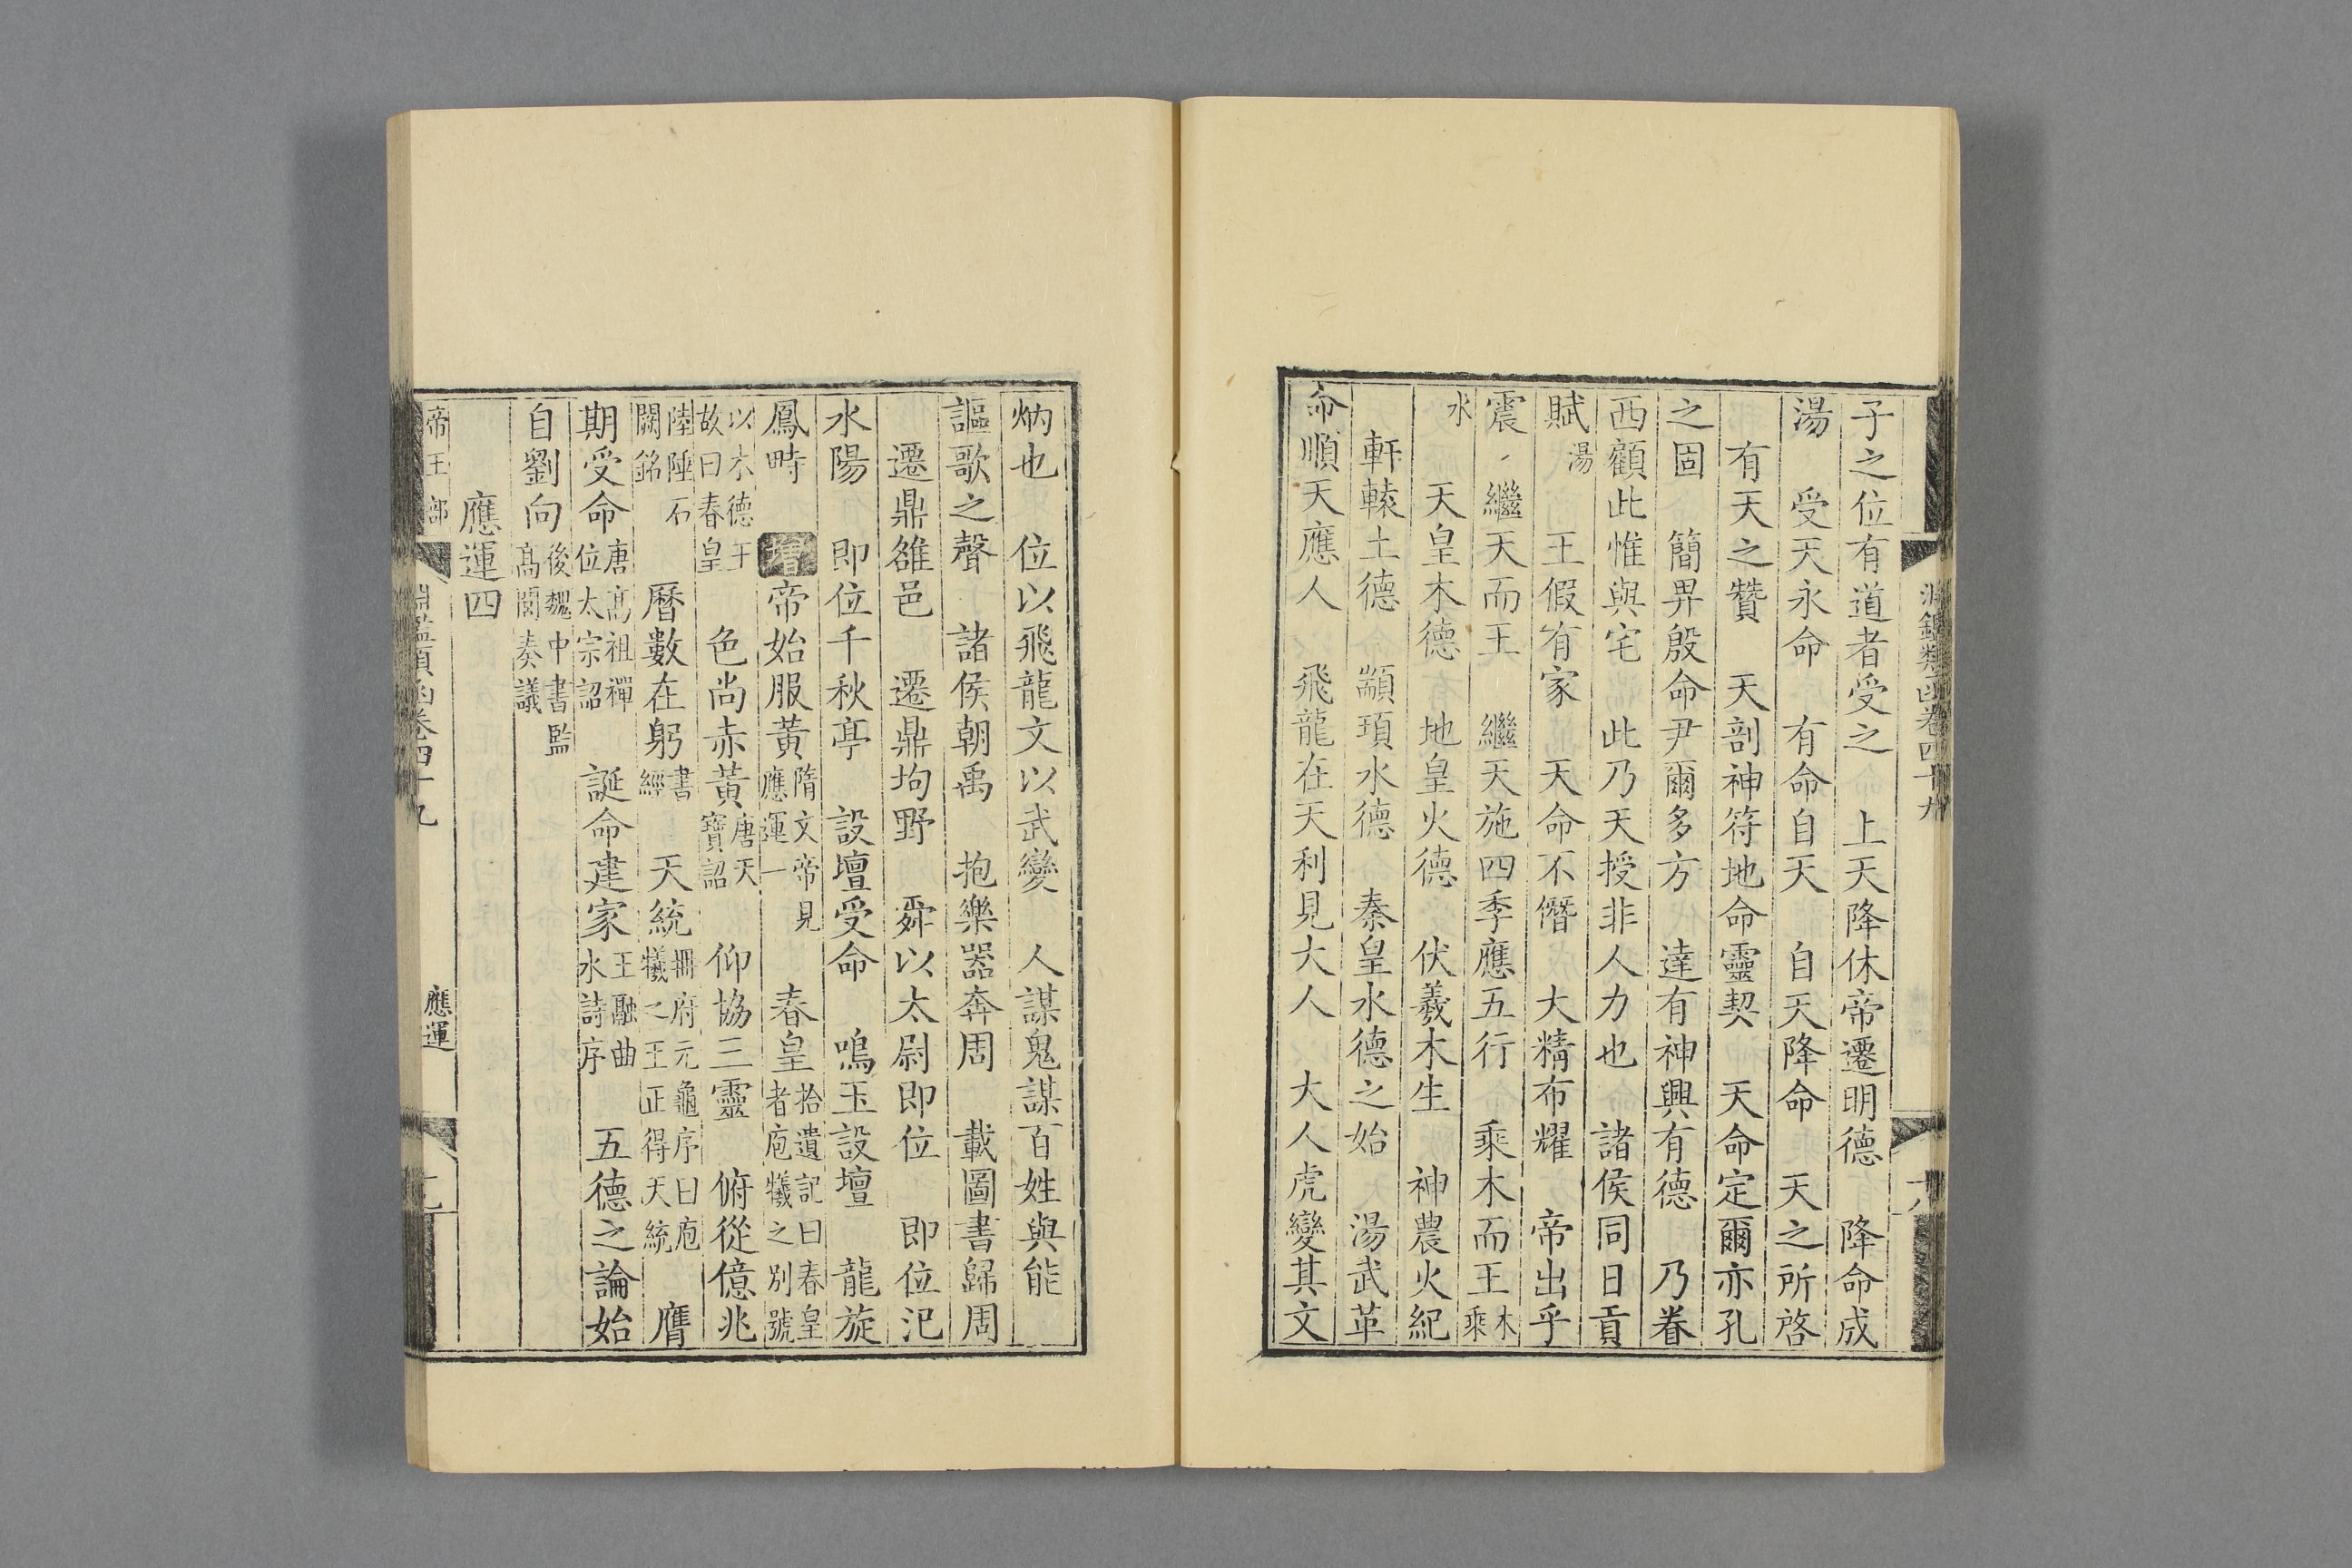 淵鑑類函卷四十九
子之位有道者受之　上天降休帝遷明德　降命成
湯　受天永命　有命自天　自天降命　天之所啓
有天之贊　天剖神符地命靈契　天命定爾亦孔
之固　簡畀殷命尹爾多方　達有神興有德　乃眷
西顧此惟與宅　此乃天授非人力也　諸侯同日貢
賦湯　王假有家　天命不僭　大精布耀　帝出乎
震　繼天而王　繼天施四季應五行　乘木而王木乘
水　天皇木德　地皇火德　伏羲木生　神農火紀
軒轅土德　顓頊水德　秦皇水德之始　湯武革
命順天應人　飛龍在天利見大人　大人虎變其文
炳也　位以飛龍文以武變　人謀鬼謀百姓與能
謳歌之聲　諸侯朝禹　抱樂器奔周　載圖書歸周
遷鼎雒邑　遷鼎坶野　舜以太尉即位　即位汜
水陽　即位千秋亭　設壇受命　鳴玉設壇　龍旋
鳳畤　增帝始服黃隋文帝見應運一　春皇拾遺記曰春皇者庖犧之別號
以木德王故曰春皇　色尚赤黃唐天寶詔　仰協三靈　俯從億兆
陸陲石闕銘　曆數在躬書經　天統冊府元龜序曰庖犧之王正得天統　膺
期受命唐高祖禪位太宗詔　誕命建家王融曲水詩序　五德之論始
自劉向後魏中書監高閭奏議
應運四
帝王部　淵鑑類函卷四十九　應運